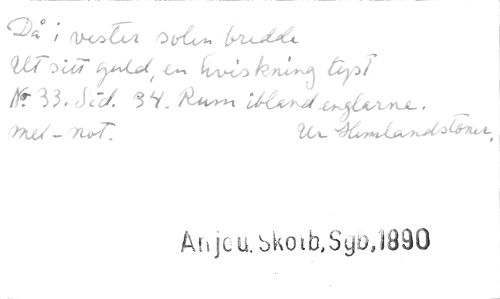 Då i vester solen bredde
Ut sitt guld, en hviskning tyst
No 33. Sid. 34. Rum ibland englarne.
med not. Ur Hemlandstoner.
Anjou. Skolb, Sgb, 1890